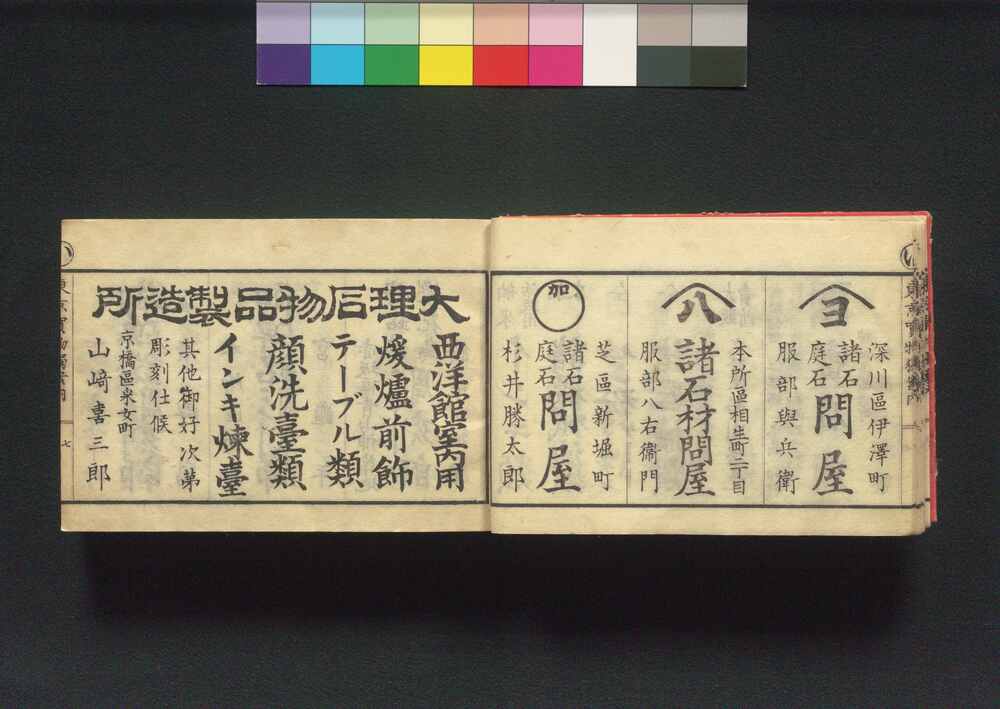 ヨ
深川區伊澤町
諸石
庭石
問屋
服部與兵衛
八
本所區相生町二丁目
諸石材問屋
服部八右衞門
加
芝區新堀町
諸石
庭石
問屋
杉井勝太郎
大理石物品製造所
西洋館室內用
煖爐前飾
テーブル類
顔洗臺類
インキ煉臺
其他御好次第
彫刻仕候
京橋區采女町
山﨑喜三郎
七